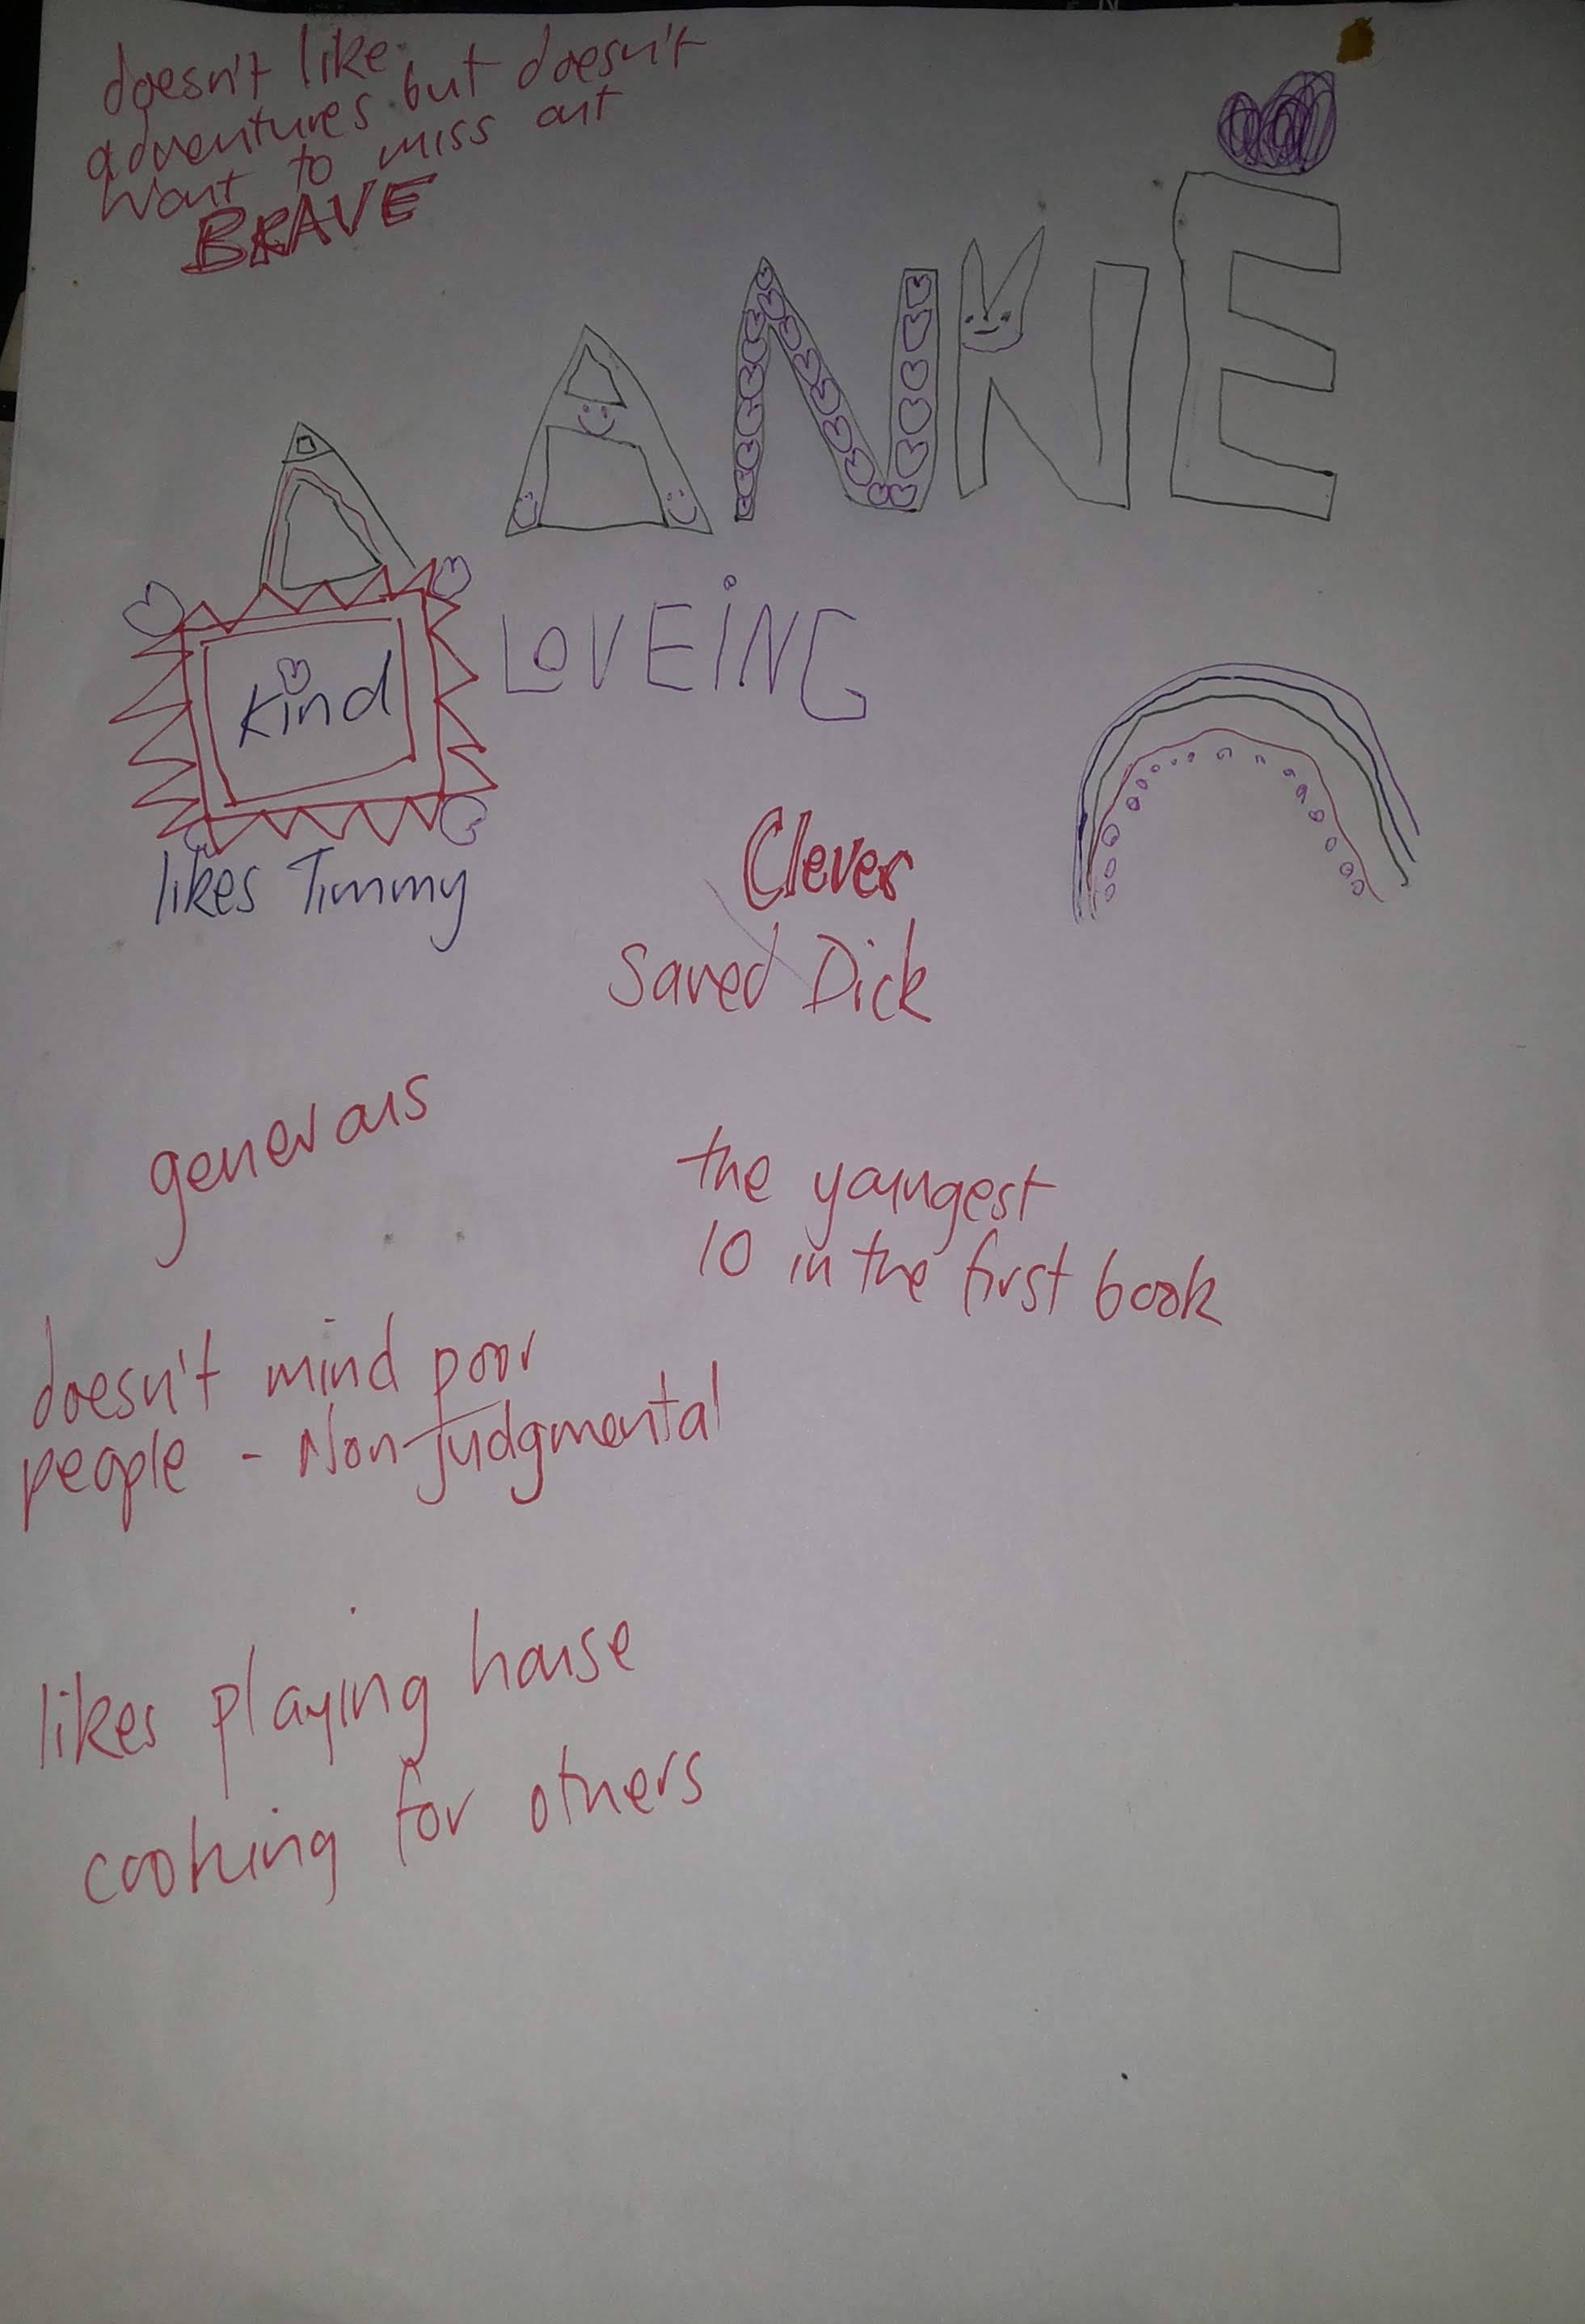 doesn't like
adventures but doesn't
want to miss out
BRAVE
A
ANNE
Kind
LOVEING
likes Timmy
Clever
saved Dick
generous
the youngest
10 in the first book
doesn't mind poor
people - Non-judgmental
likes playing house
cooking for others